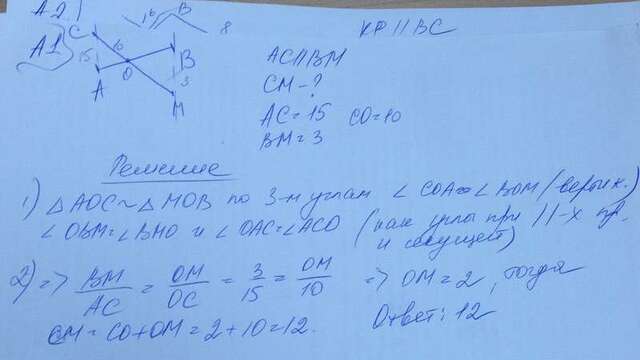 A2)
16 B
8
KP || BC
A1)
C
10
15
O
B
A
3
M
AC || BM
CM - ?
AC = 15 CO = 10
BM = 3
Решение
1) △AOC ~ △MOB по 3-м углам ∠COA = ∠BOM (вертик.)
∠OBM = ∠BMO и ∠OAC = ∠ACO (как углы при ||-х пр.
и секущей)
2) => BM/AC = OM/OC = 3/15 = OM/10 => OM = 2, тогда
CM = CO + OM = 2 + 10 = 12.
Ответ: 12